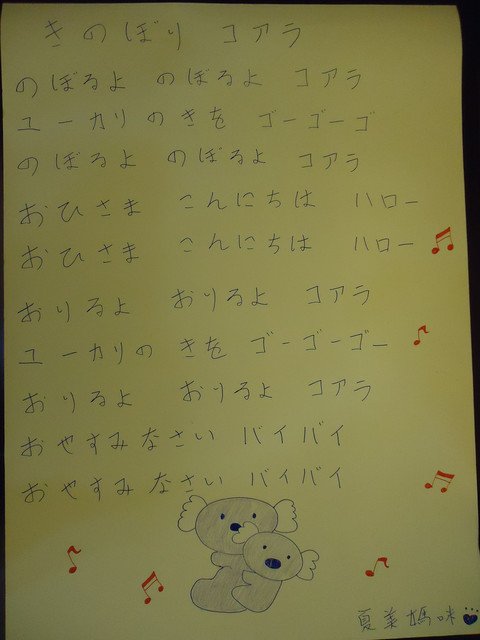 きのぼり コアラ
のぼるよ のぼるよ コアラ
ユーカリのきを ゴーゴーゴ
のぼるよ のぼるよ コアラ
おひさま こんにちは ハロー
おひさま こんにちは ハロー
おりるよ おりるよ コアラ
ユーカリの きを ゴーゴーゴー
おりるよ おりるよ コアラ
おやすみなさい バイバイ
おやすみなさい バイバイ
夏菜媽咪